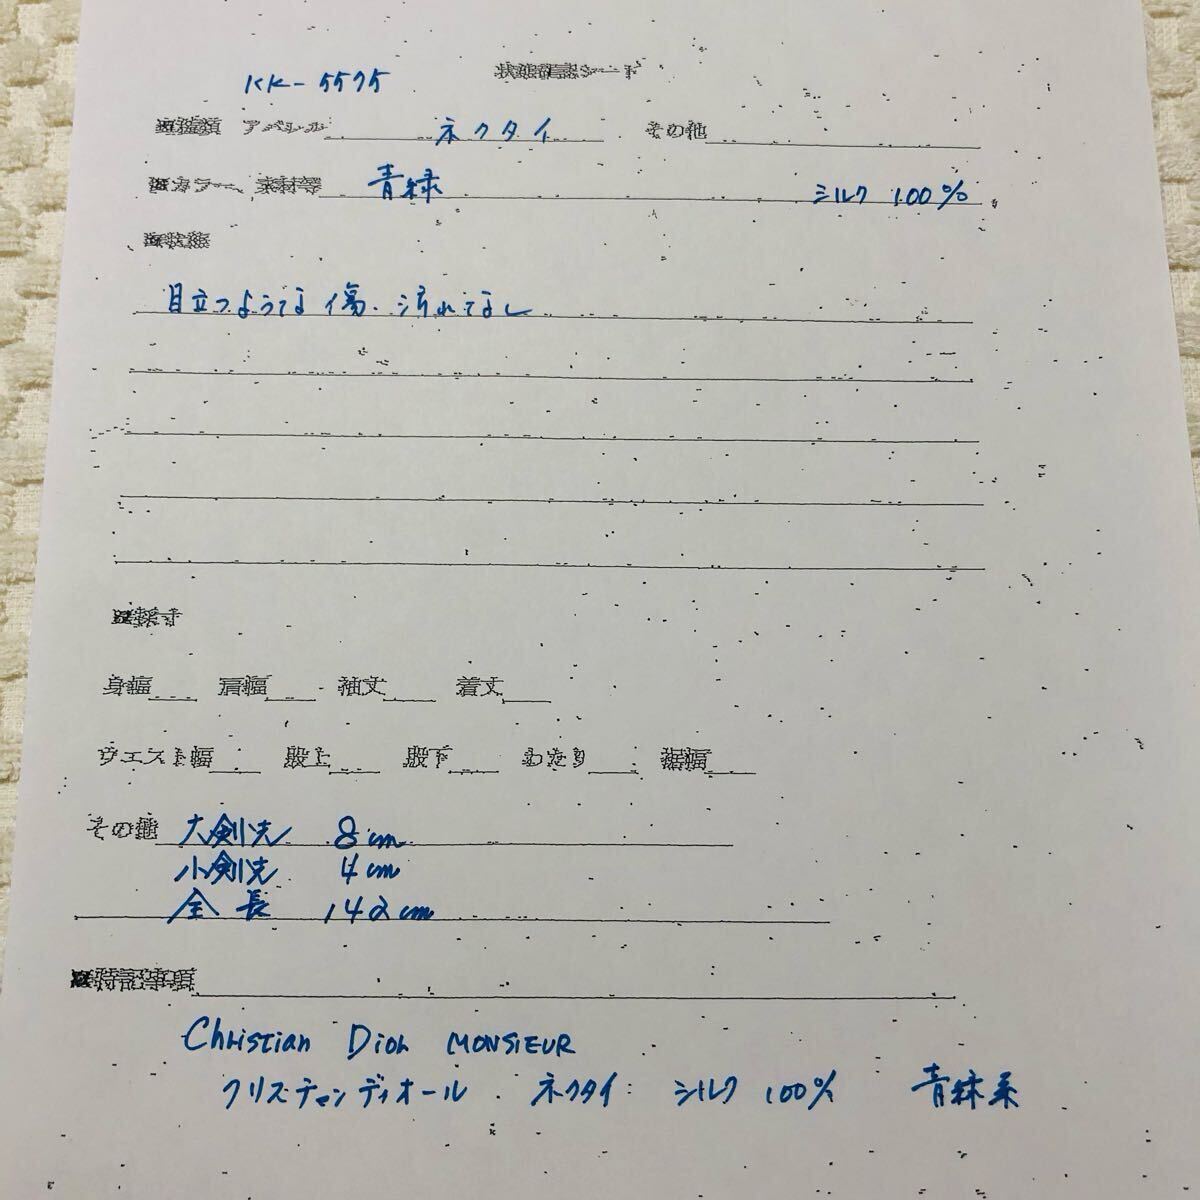 KK-5575
状態確認シート
■種類 アパレル ネクタイ その他
■カラー、素材等 青緑 シルク 100%
■状態
目立つような傷・汚れなし
■採寸
身幅 肩幅 袖丈 着丈
ウエスト幅 股上 股下 わたり 裾幅
その他 大剣先 8cm
小剣先 4cm
全長 142cm
■特記事項
Christian Dior MONSIEUR
クリスチャンディオール ネクタイ シルク 100% 青緑系